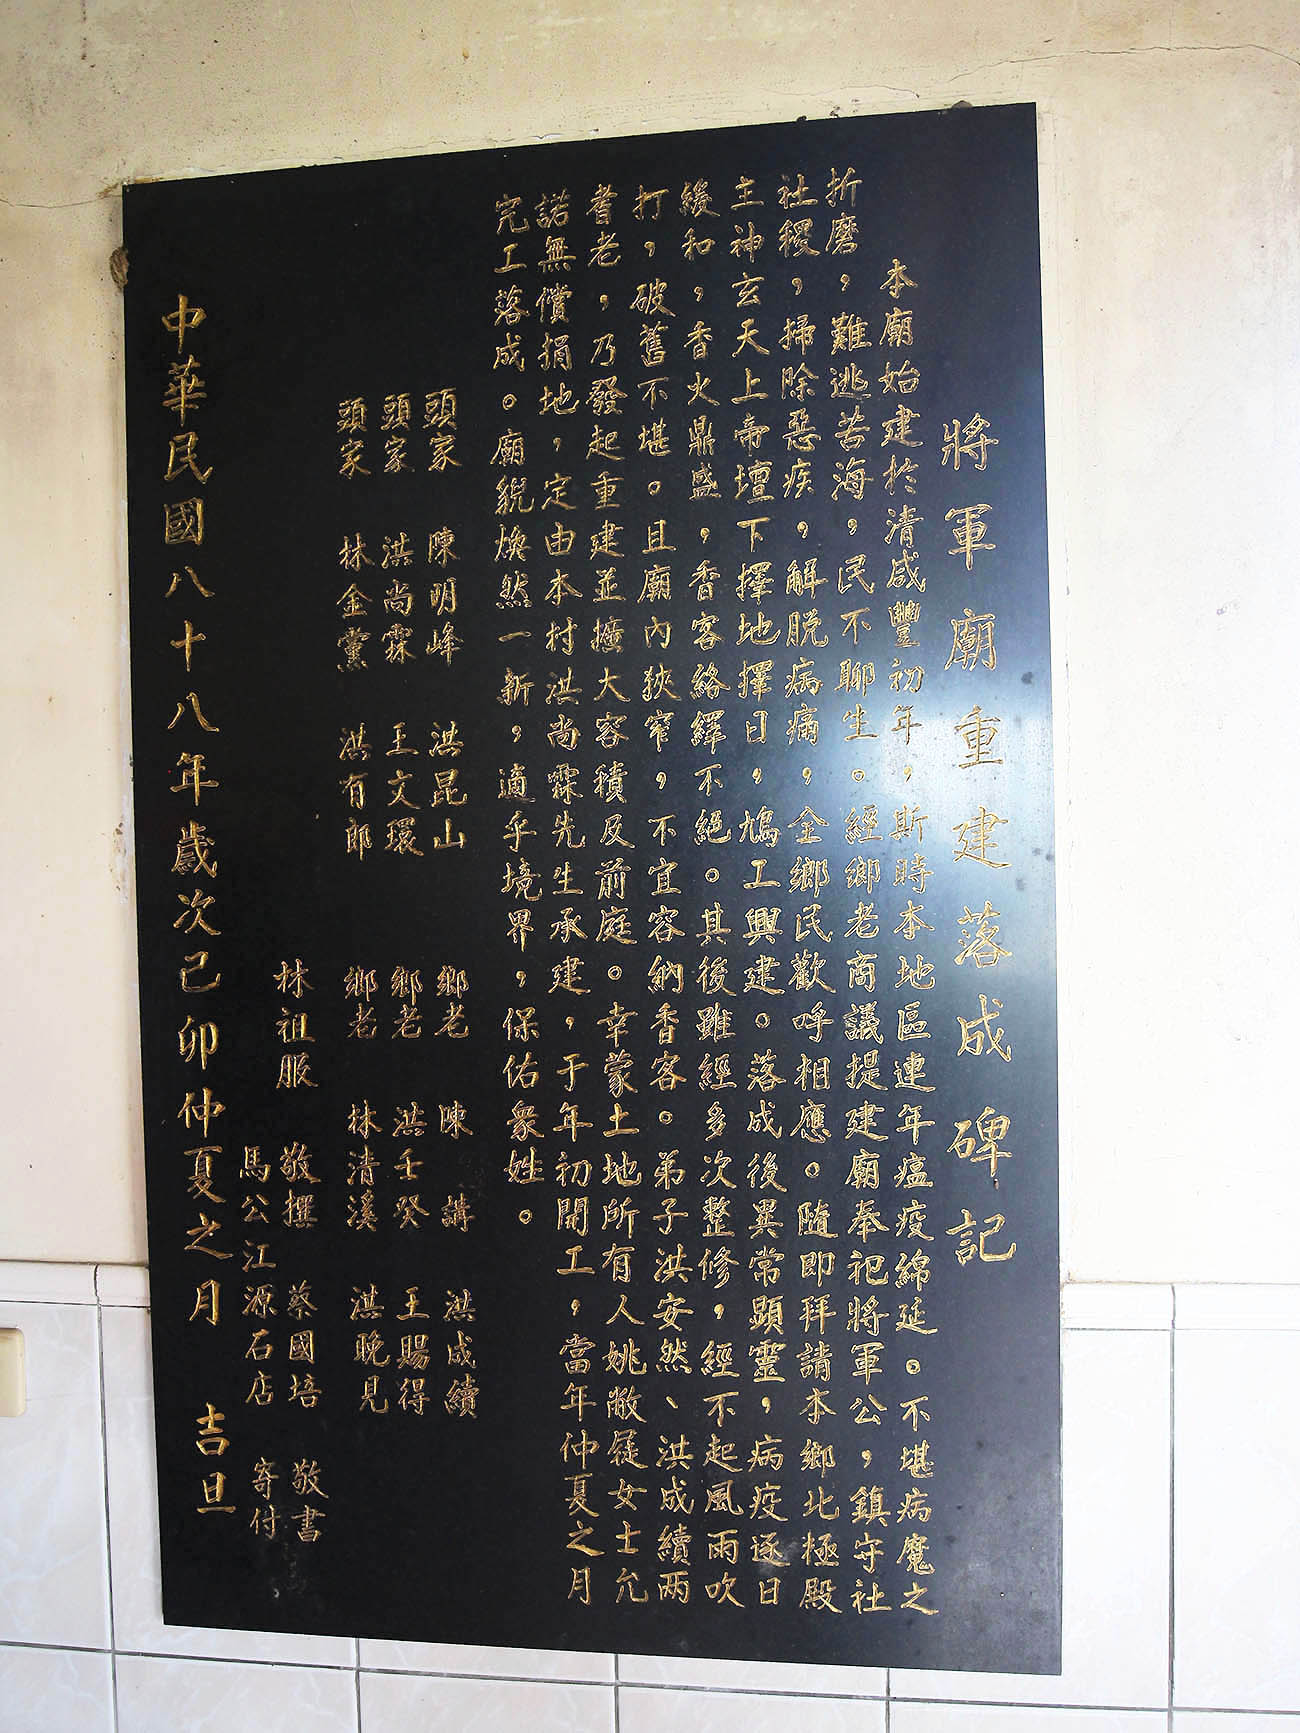 將軍廟重建落成碑記
本廟始建於清咸豐初年，斯時本地區連年瘟疫綿延。不堪病魔之
折磨，難逃苦海，民不聊生。經鄉老商議提建廟奉祀將軍公，鎮守社
社稷，掃除惡疾，解脫病痛，全鄉民歡呼相應。隨即拜請本鄉北極殿
主神玄天上帝壇下擇地擇日，鳩工興建。落成後異常顯靈，病疫逐日
緩和，香火鼎盛，香客絡繹不絕。其後雖經多次整修，經不起風雨吹
打，破舊不堪。且廟內狹窄，不宜容納香客。弟子洪安然、洪成續兩
耆老，乃發起重建並擴大容積及前庭。幸蒙土地所有人姚敝屣女士允
諾無償捐地，定由本村洪尚霖先生承建，于年初開工，當年仲夏之月
完工落成。廟貌煥然一新，適乎境界，保佑眾姓。
頭家 陳明峰 洪昆山 鄉老 陳講 洪成續
頭家 洪尚霖 王文環 鄉老 洪壬癸 王賜得
頭家 林金黨 洪有郎 鄉老 林清溪 洪晚見
林祖服 敬撰 蔡國培 敬書
馬公江源石店 寄付
中華民國八十八年歲次己卯仲夏之月 吉旦